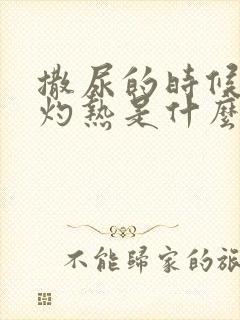 撒尿的時候
灼熱是什麼
不能歸家的旅